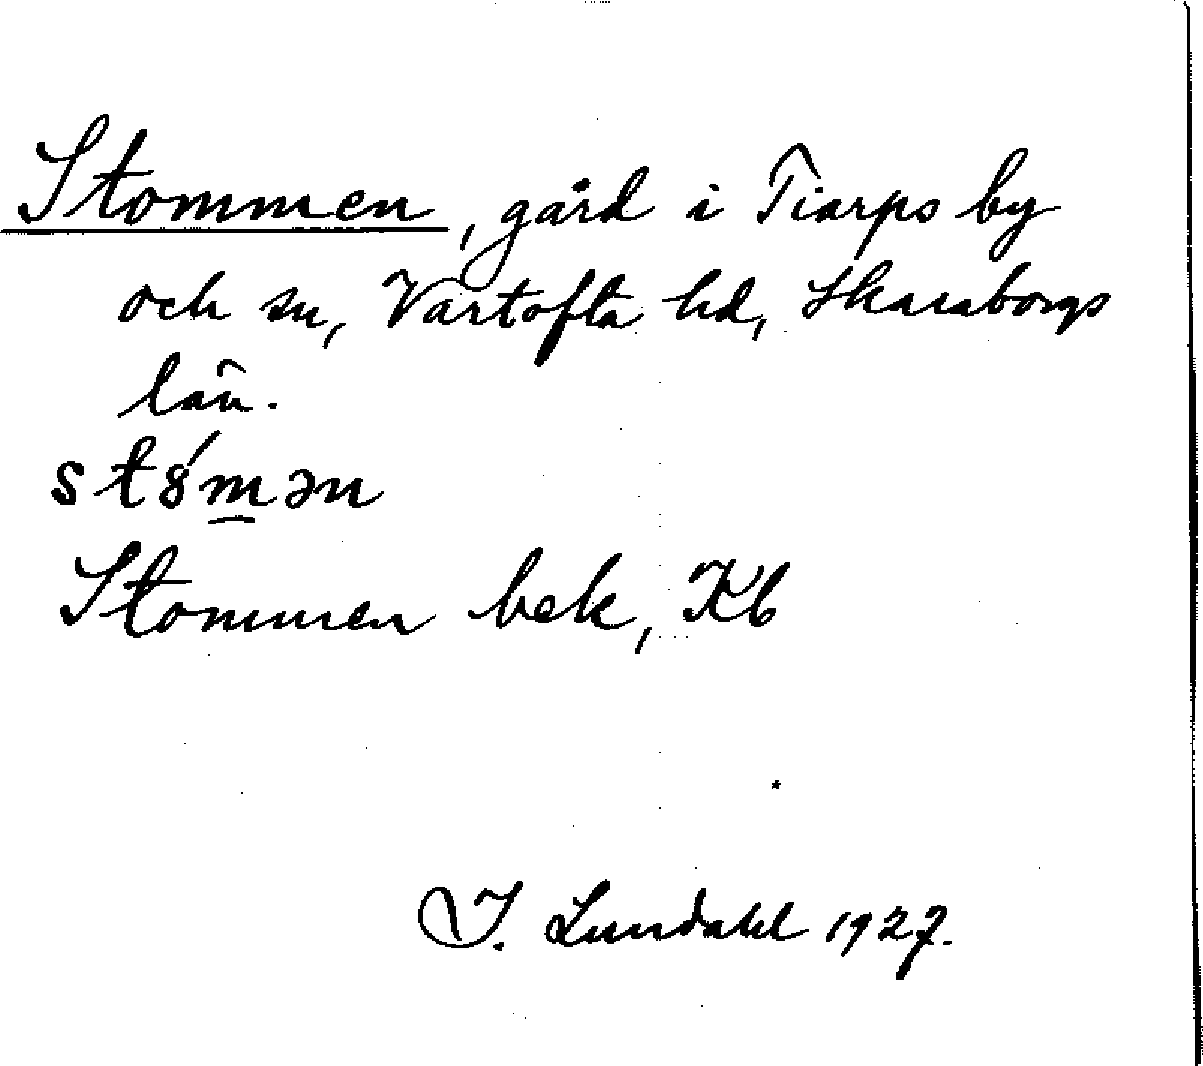 Stommen, gård i Tiarps by
och sn, Vartofta hd, Skaraborgs
län.
st8́m̲ən
Stommen bek, Kb
I. Lundahl 1927.